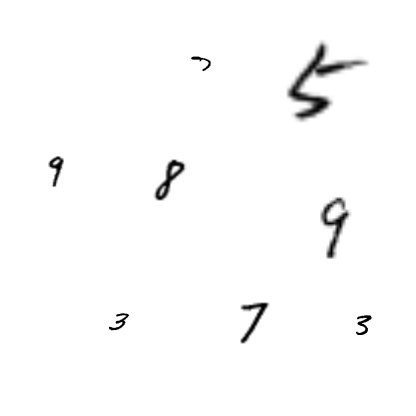 7 5
9 8
9
3 7 3